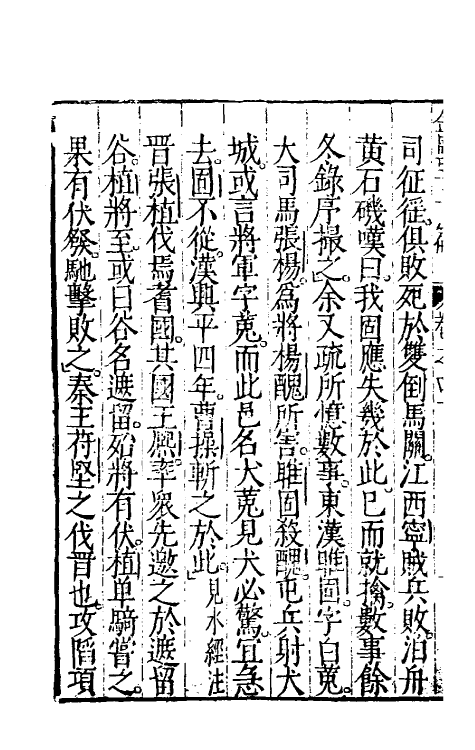 司征徭俱敗死於雙倒馬關江西寧賊兵敗泊舟
黄石磯嘆曰我固應失幾於此已而就擒數事餘
冬錄序撮之余又疏所憶數事東漢眭固字白兎
大司馬張楊為將楊醜所害眭固殺醜屯兵射犬
城或言將軍字兎而此邑名犬兎見犬必驚宜急
去固不從漢興平四年曹操斬之於此見水經注
晋張植伐焉耆國其國王熙率衆先邀之於遮留
谷植將至或曰谷名遮留殆將有伏植单騎嘗之
果有伏發馳擊敗之秦王苻堅之伐晋也攻陷項